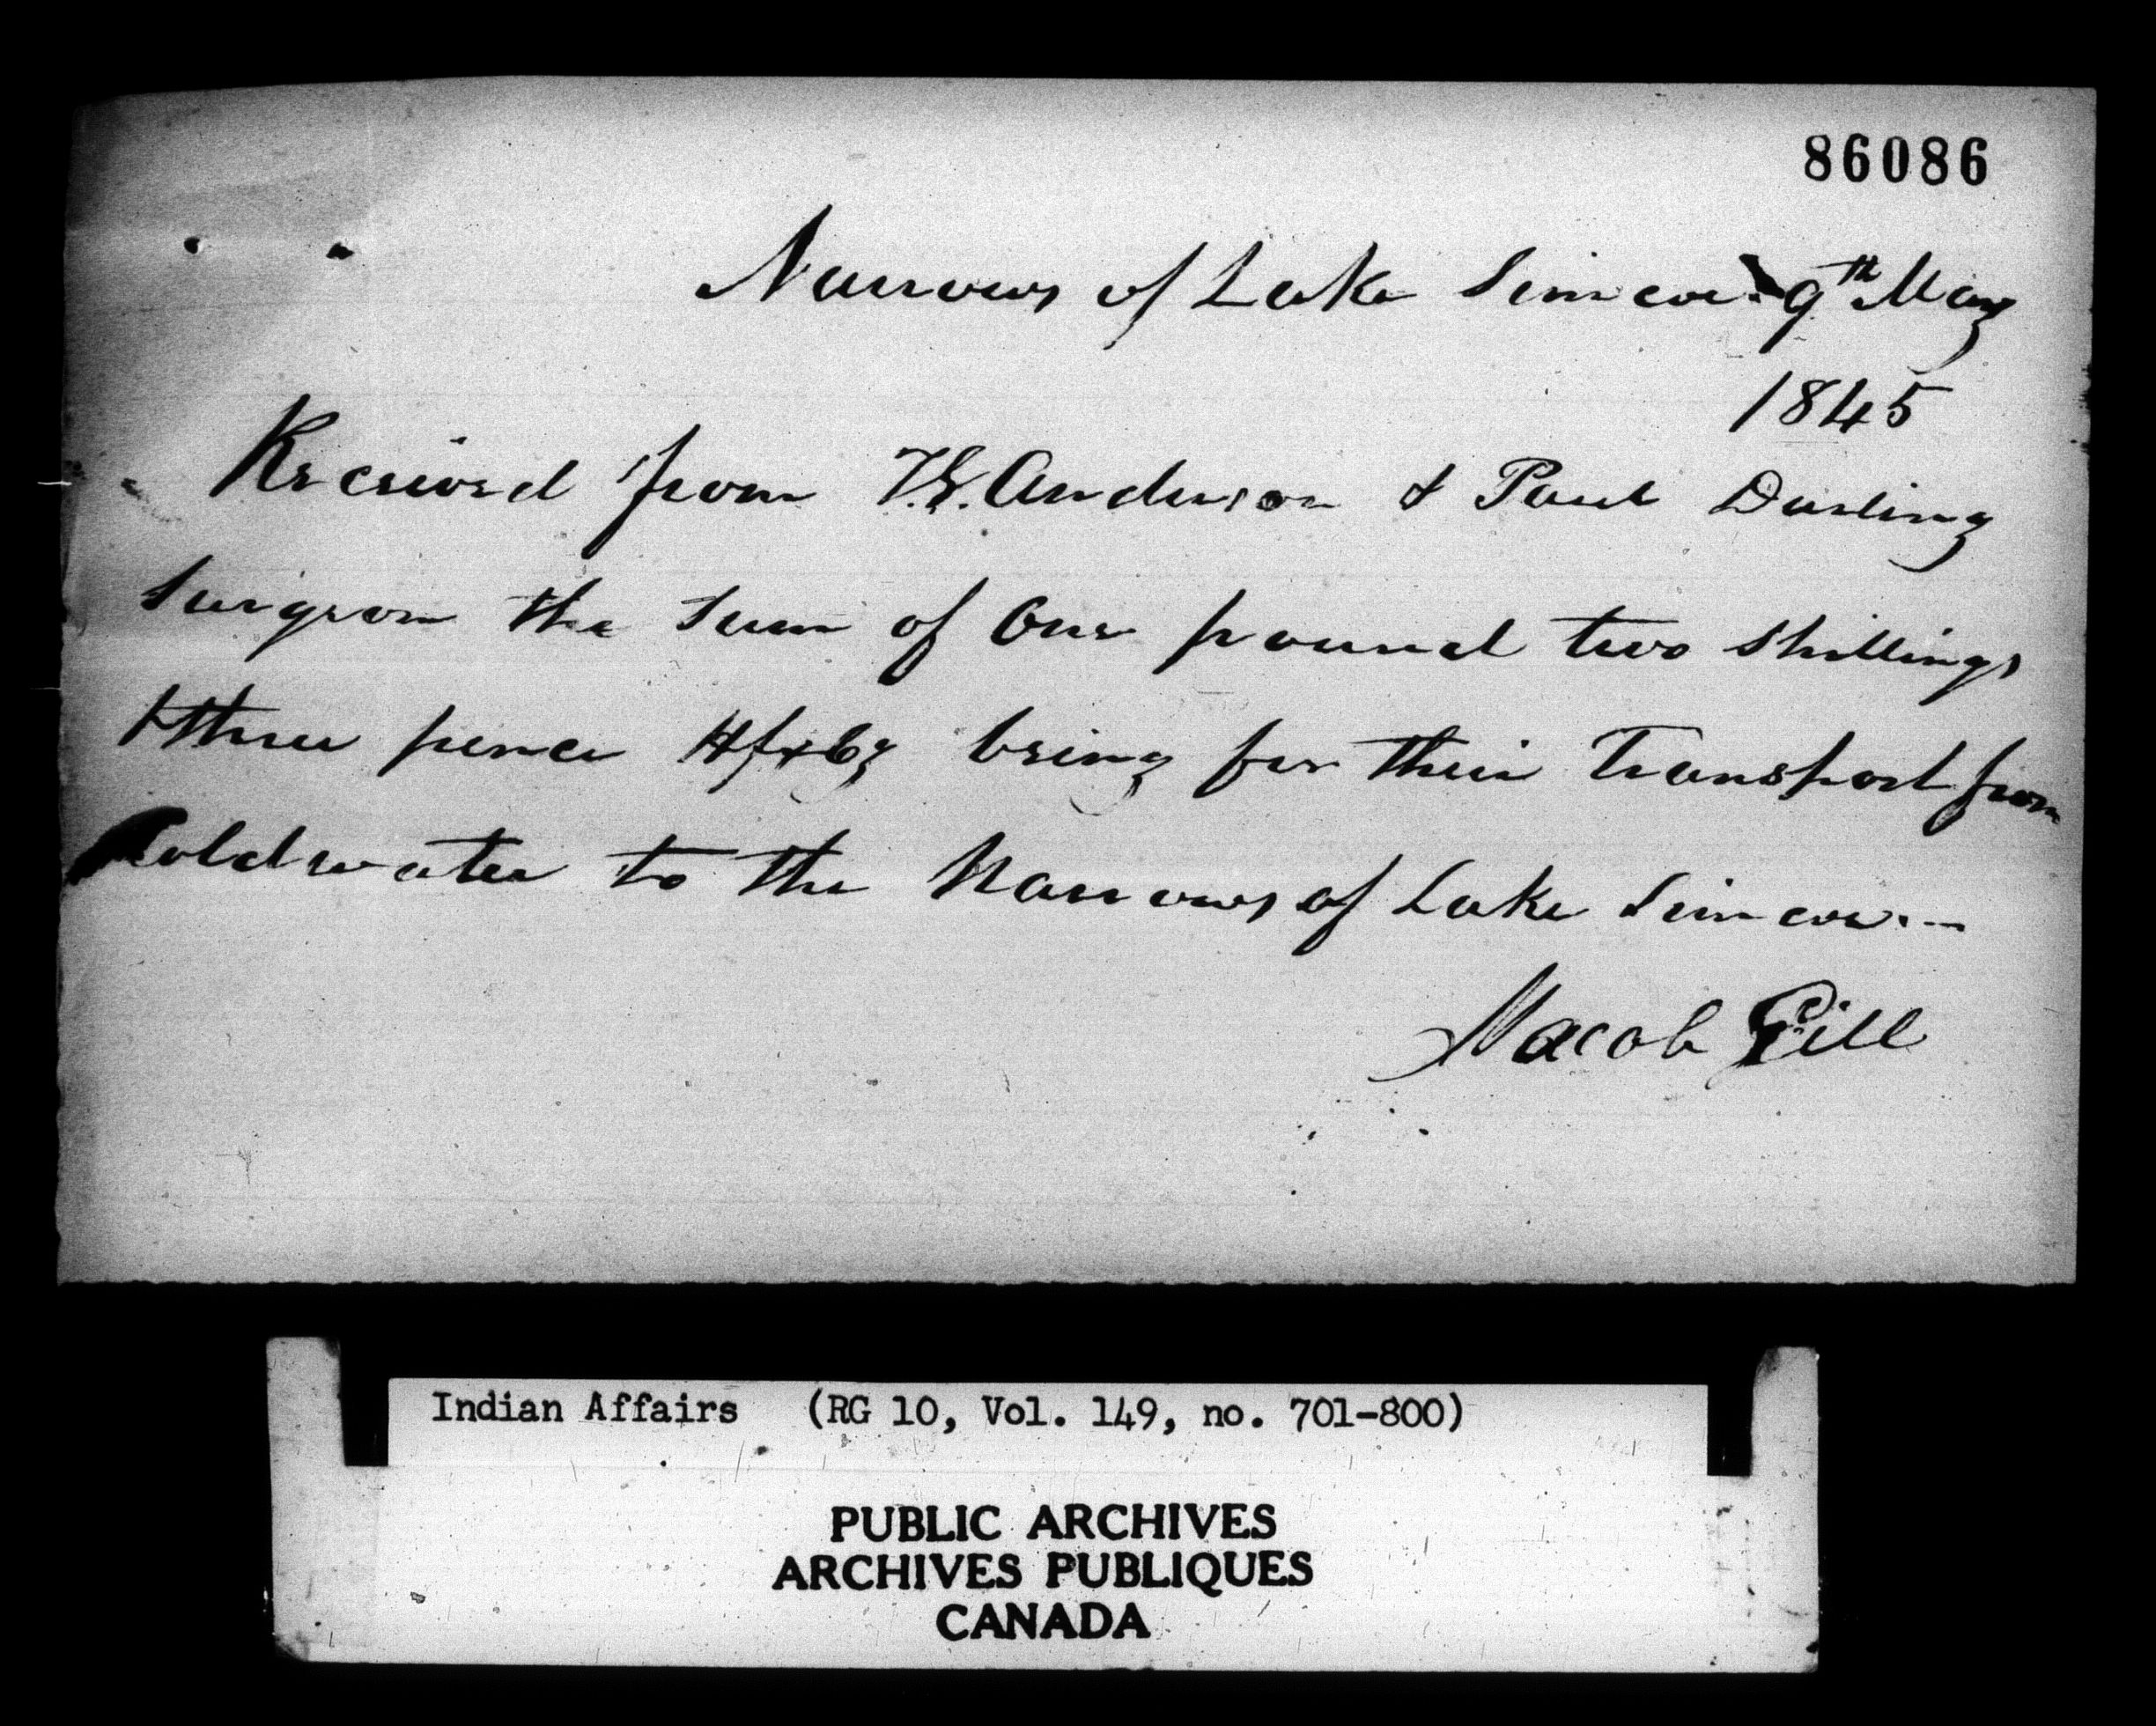 86086
Narrows of Lake Simcoe 9th May
1845
Received from T.G. Anderson & Paul Darling
Surgeon the sum of One pound two shillings
& three pence Hfx Cy being for their Transport from
Coldwater to the Narrows of Lake Simcoe.—
Jacob Gill
Indian Affairs (RG 10, Vol. 149, no. 701-800)
PUBLIC ARCHIVES
ARCHIVES PUBLIQUES
CANADA